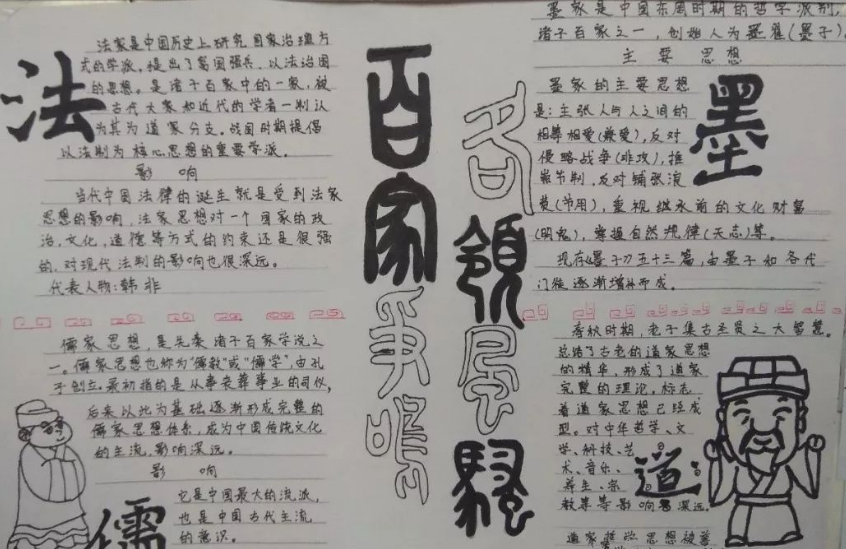 法
法家是中国历史上研究国家治理方
式的学派，提出了富国强兵、以法治国
的思想。是诸子百家中的一家，被
古代大家和近代的学者一制认
为其为道家分支。战国时期提倡
以法制为核心思想的重要学派。
影响
当代中国法律的诞生就是受到法家
思想的影响，法家思想对一个国家的政
治，文化，道德等方式的约束还是很强
的，对现代法制的影响也很深远。
代表人物：韩非
儒家思想，是先秦诸子百家学说之
一。儒家思想也称为"儒教"或"儒学"，由孔
子创立，最初指的是从事丧葬事业的司仪，
后来以此为基础逐渐形成完整的
儒家思想体系，成为中国传统文化
的主流，影响深远。
影响
它是中国最大的流派，
也是中国古代主流
的意识。
儒
百家争鸣
各领风骚
墨家是中国东周时期的哲学派别，
诸子百家之一，创始人为墨翟(墨子)。
主要思想
墨家的主要思想
是：主张人与人之间的
相等相爱(兼爱)，反对
侵略战争(非攻)，推
崇节制，反对铺张浪
费(节用)，重视继承前的文化财富
(明鬼)，掌握自然规律(天志)等。
现存《墨子》五十三篇，由墨子和各代
门徒逐渐增补而成。
墨
春秋时期，老子集古圣贤之大智慧。
总结了古老的道家思想
的精华，形成了道家
完整的理论，标志
着道家思想已经成
型。对中华哲学、文
学、科技、艺
术、音乐、
养生、宗
教等等影响深远。
道
道家哲学思想被